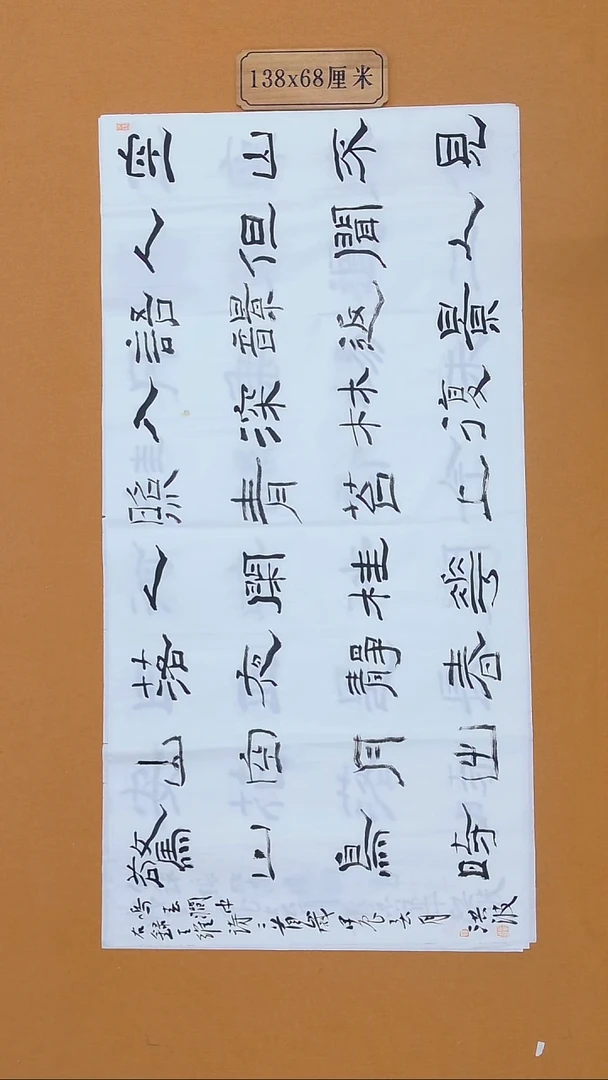 138x68厘米
空山不見
人但聞人
語響返景
入深林復
照青苔上
人閑桂華
落夜靜春
山空月出
驚山鳥時
鳴澗中
右錄王維詩二首歲甲辰月
洪波